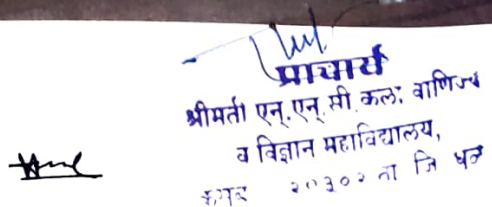 प्राचार्य
श्रीमती एन्.एन्.सी. कला, वाणिज्य
व विज्ञान महाविद्यालय,
ता जि